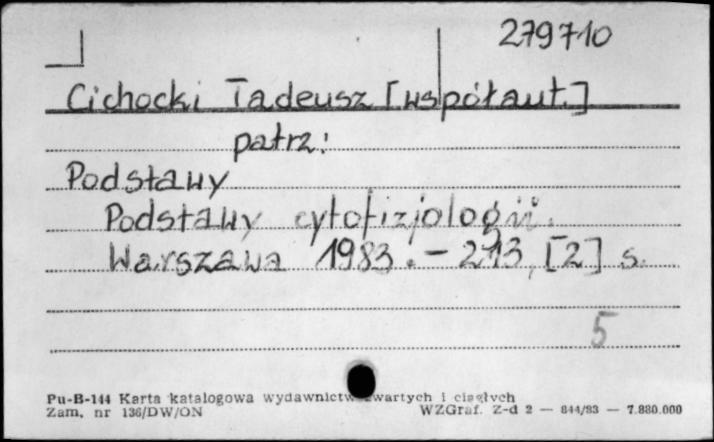 279710
Cichocki Tadeusz [współaut.]
patrz:
Podstawy
Podstawy cytofizjologii.
Warszawa 1983. – 273, [2] s.
5
Pu-B-144 Karta katalogowa wydawnictw zwartych i ciągłych
Zam. nr 136/DW/ON WZGraf. Z-d 2 — 844/83 — 7.880.000